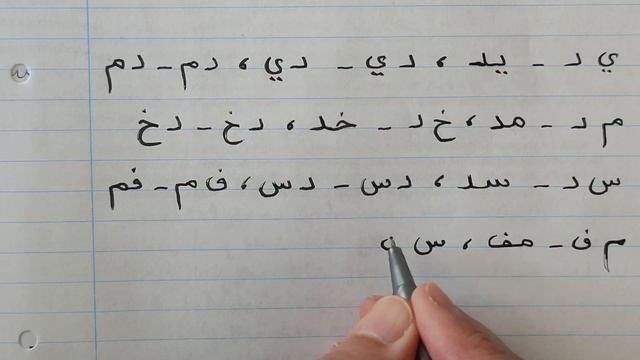 ي د - يد ، د ي - دي ، د م - دم
م د - مد ، خ د - خد ، د خ - دخ
س د - سد ، د س - دس ، ف م - فم
م ف - مف ، س